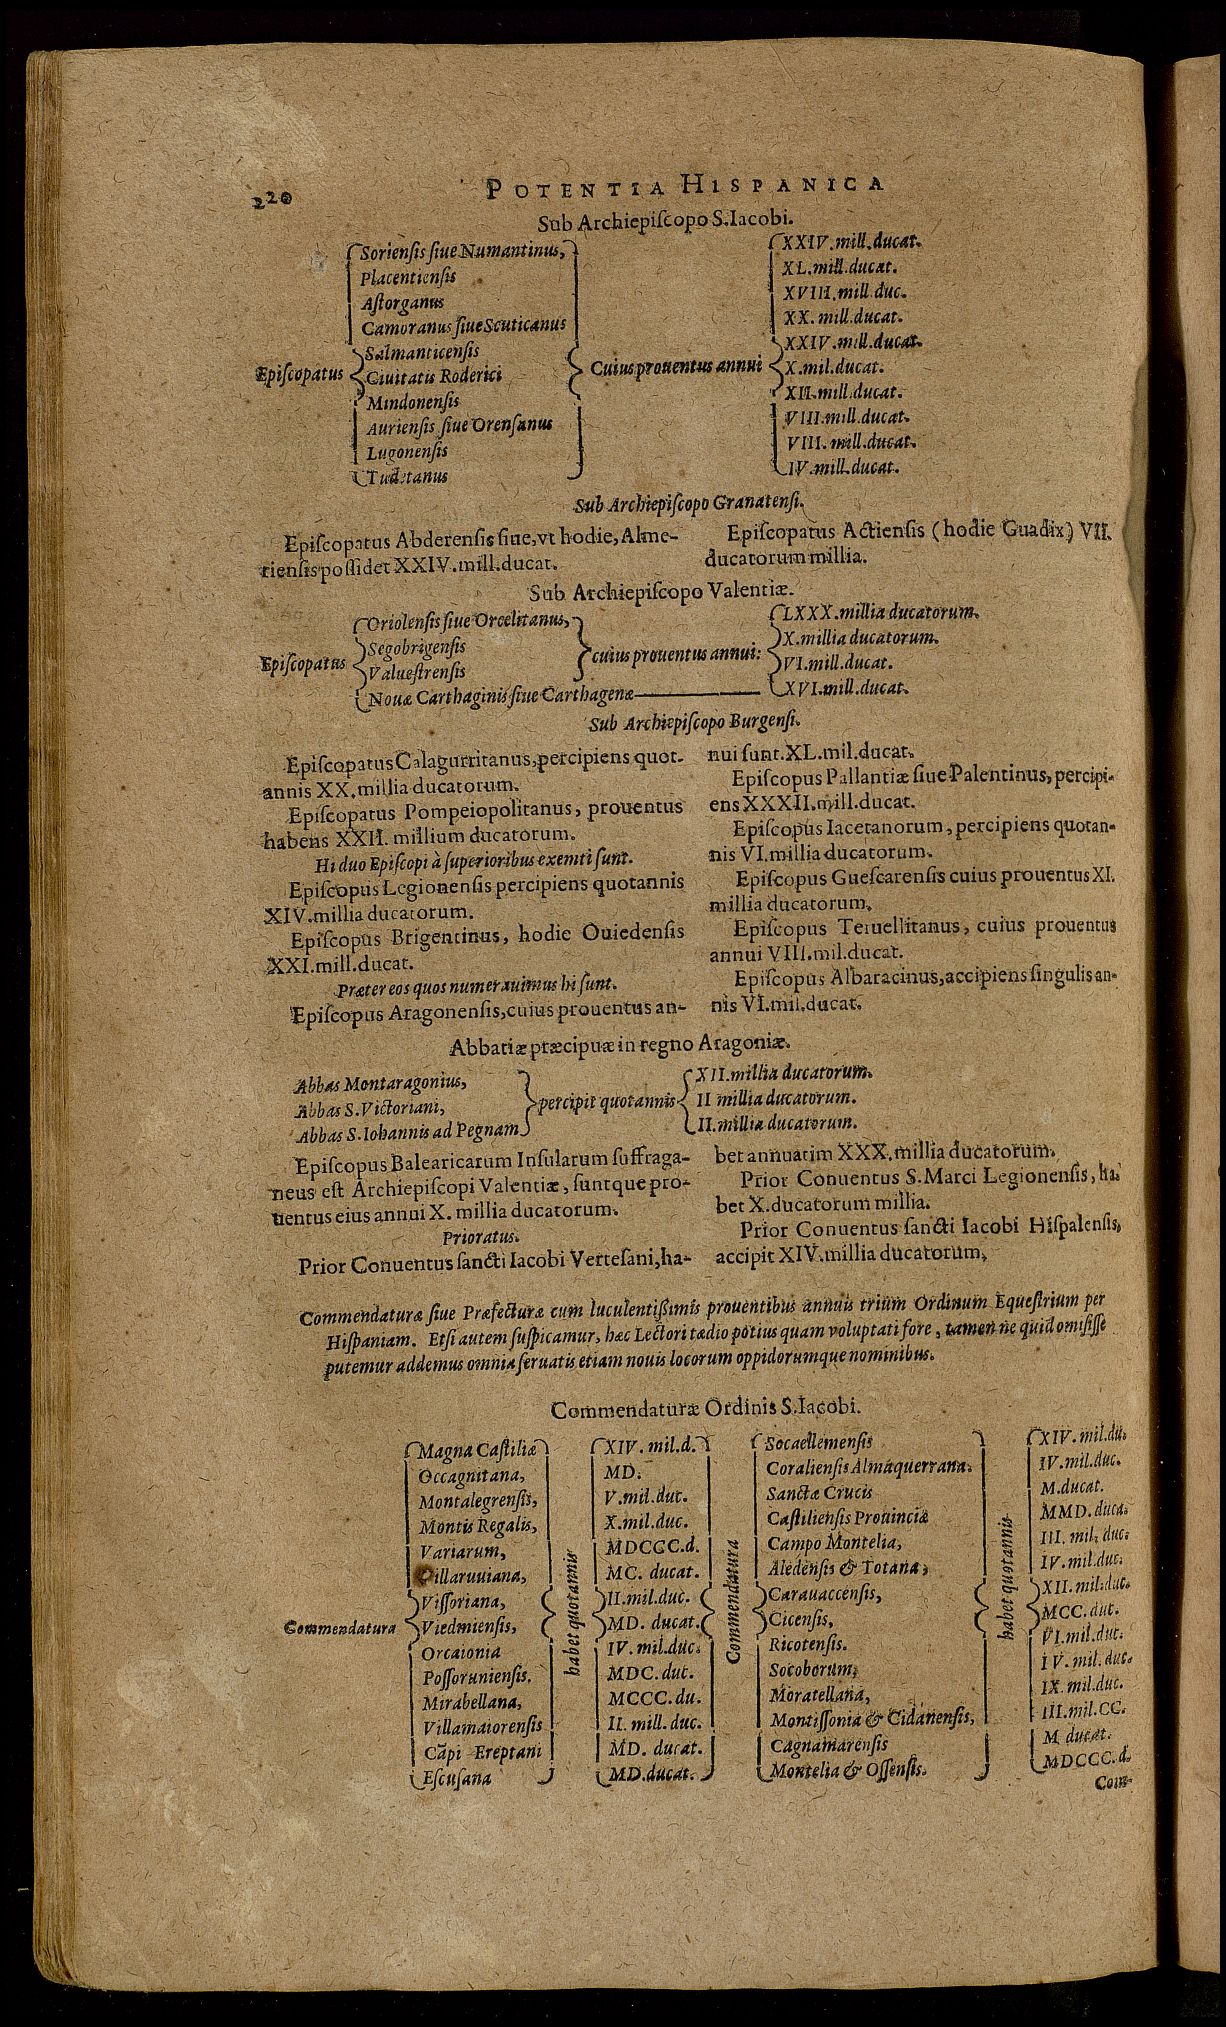 220
POTENTIA HISPANICA
Sub Archiepiſcopo S. Iacobi.
Episcopatus
Sorienſis ſiue Numantinus,
Placentienſis
Aſtorganus
Camoranus ſiue Scuticanus
Salmanticenſis
Ciuitatis Roderici
Mindonenſis
Aurienſis ſiue Orenſanus
Lugonenſis
Tudetanus
Cuius prouentus annui
XXIV. mill. ducat.
XL. mill. ducat.
XVIII. mill duc.
XX. mill. ducat.
XXIV. mill. ducat.
X. mil. ducat.
XII. mill. ducat.
VIII. mill. ducat.
VIII. mill. ducat.
IV. mill. ducat.
Sub Archiepiſcopo Granatenſi.
Epiſcopatus Abderenſis ſiue, vt hodie, Alme-
rienſis poſſidet XXIV. mill. ducat.
Epiſcopatus Actienſis (hodie Guadix) VII.
ducatorum millia.
Sub Archiepiſcopo Valentiæ.
Epiſcopatus
Oriolenſis ſiue Orcelitanus,
Segobrigenſis
Valueſtrenſis
Nouæ Carthaginis ſiue Carthagenæ
cuius prouentus annui:
LXXX. millia ducatorum.
X. millia ducatorum.
VI. mill. ducat.
XVI. mill. ducat.
Sub Archiepiſcopo Burgenſi.
Epiſcopatus Calagurritanus, percipiens quot-
annis XX. millia ducatorum.
Epiſcopatus Pompeiopolitanus, prouentus
habens XXII. millium ducatorum.
Hi duo Epiſcopi à ſuperioribus exemti ſunt.
Epiſcopus Legionenſis percipiens quotannis
XIV. millia ducatorum.
Epiſcopus Brigentinus, hodie Ouiedenſis
XXI. mill. ducat.
Præter eos quos numerauimus hi ſunt.
Epiſcopus Aragonenſis, cuius prouentus an-
nui ſunt. XL. mil. ducat.
Epiſcopus Pallantiæ ſiue Palentinus, percipi-
ens XXXII. mill. ducat.
Epiſcopus Iacetanorum, percipiens quotan-
nis VI. millia ducatorum.
Epiſcopus Gueſcarenſis cuius prouentus XI.
millia ducatorum.
Epiſcopus Teruellitanus, cuius prouentus
annui VIII. mil. ducat.
Epiſcopus Albaracinus, accipiens ſingulis an-
nis VI. mil. ducat.
Abbatiæ præcipuæ in regno Aragoniæ.
Abbas Montaragonius,
Abbas S. Victoriani,
Abbas S. Iohannis ad Pegnam
percipit quotannis
XII. millia ducatorum.
II millia ducatorum.
II. millia ducatorum.
Epiſcopus Balearicarum Inſularum ſuffraga-
neus eſt Archiepiſcopi Valentiæ, ſuntque pro-
uentus eius annui X. millia ducatorum.
Prioratus.
Prior Conuentus ſancti Iacobi Verteſani, ha-
bet annuatim XXX. millia ducatorum.
Prior Conuentus S. Marci Legionenſis, ha-
bet X. ducatorum millia.
Prior Conuentus ſancti Iacobi Hiſpalenſis,
accipit XIV. millia ducatorum,
Commendaturæ ſiue Præfecturæ cum luculentißimis prouentibus annuis trium Ordinum Equeſtrium per
Hiſpaniam. Etſi autem ſuſpicamur, hæc Lectori tædio potius quam voluptati fore, tamen ne quid omiſiſſe
putemur addemus omnia ſeruatis etiam nouis locorum oppidorumque nominibus.
Commendaturæ Ordinis S. Iacobi.
Commendatura
Magna Caſtiliæ
Occagnitana,
Montalegrenſis,
Montis Regalis,
Variarum,
Villaruuiana,
Viſſoriana,
Viedmienſis,
Orcaionia
Poſſorunienſis.
Mirabellana,
Villamaiorenſis
Cãpi Ereptani
Eſcuſana
habet quotannis
XIV. mil. d.
MD.
V. mil. duc.
X. mil. duc.
MDCCC. d.
MC. ducat.
II. mil. duc.
MD. ducat.
IV. mil. duc.
MDC. duc.
MCCC. du.
II. mill. duc.
MD. ducat.
MD. ducat.
Commendatura
Socaellemenſis
Coralienſis Almaquerrana.
Sanctæ Crucis
Caſtilienſis Prouinciæ
Campo Montelia,
Aledenſis & Totana,
Carauaccenſis,
Cicenſis,
Ricotenſis.
Socoborum,
Moratellana,
Montiſſonia & Cidanenſis,
Cagnamarenſis
Montelia & Oſſenſis.
habet quotannis
XIV. mil. du.
IV. mil. duc.
M. ducat.
MMD. duca.
III. mil. duc.
IV. mil. duc.
XII. mil. duc.
MCC. duc.
VI. mil. duc.
IV. mil. duc.
IX. mil. duc.
III. mil. CC.
M ducat.
MDCCC. d.
Com-